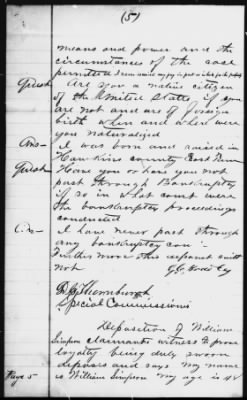 (5)
means and power and the
circumstances of the case
permitted I never cast my
Quest Are you a native citizen
of the United States if you
are not and are of foreign
birth when and where were
you naturalized
Ans— I was born and raised in
Hawkins county East Tenn
Quest Have you or have you not
past through Bankruptcy
if so in what court were
the bankruptcy proceedings
conducted
Ans— I have never past through
any bankruptcy cou:—
Further more this deponent saith
not
R. J. Thornburgh
Special Commissioner
Deposition of William
Simpson claimants witness to prove
loyalty being duly sworn
deposes and says my name
is William Simpson my age is 48
Page 5